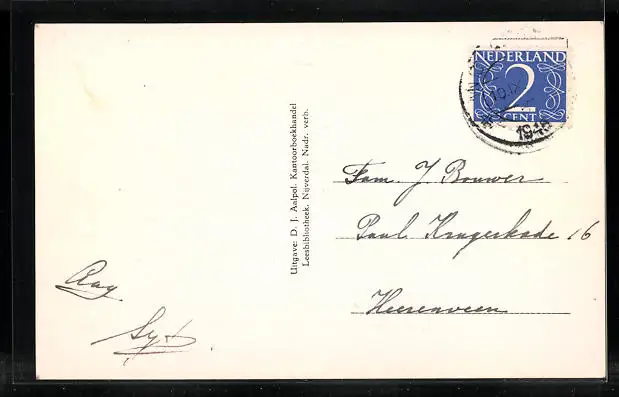 NEDERLAND
2
CENT
10.IX
Uitgave: D. J. Aalpol. Kantoorboekhandel
Leesbibliotheek. Nijverdal. Nadr. verb.
Fam. J. Bouwer
Paul Krugerkade 16
Heerenveen